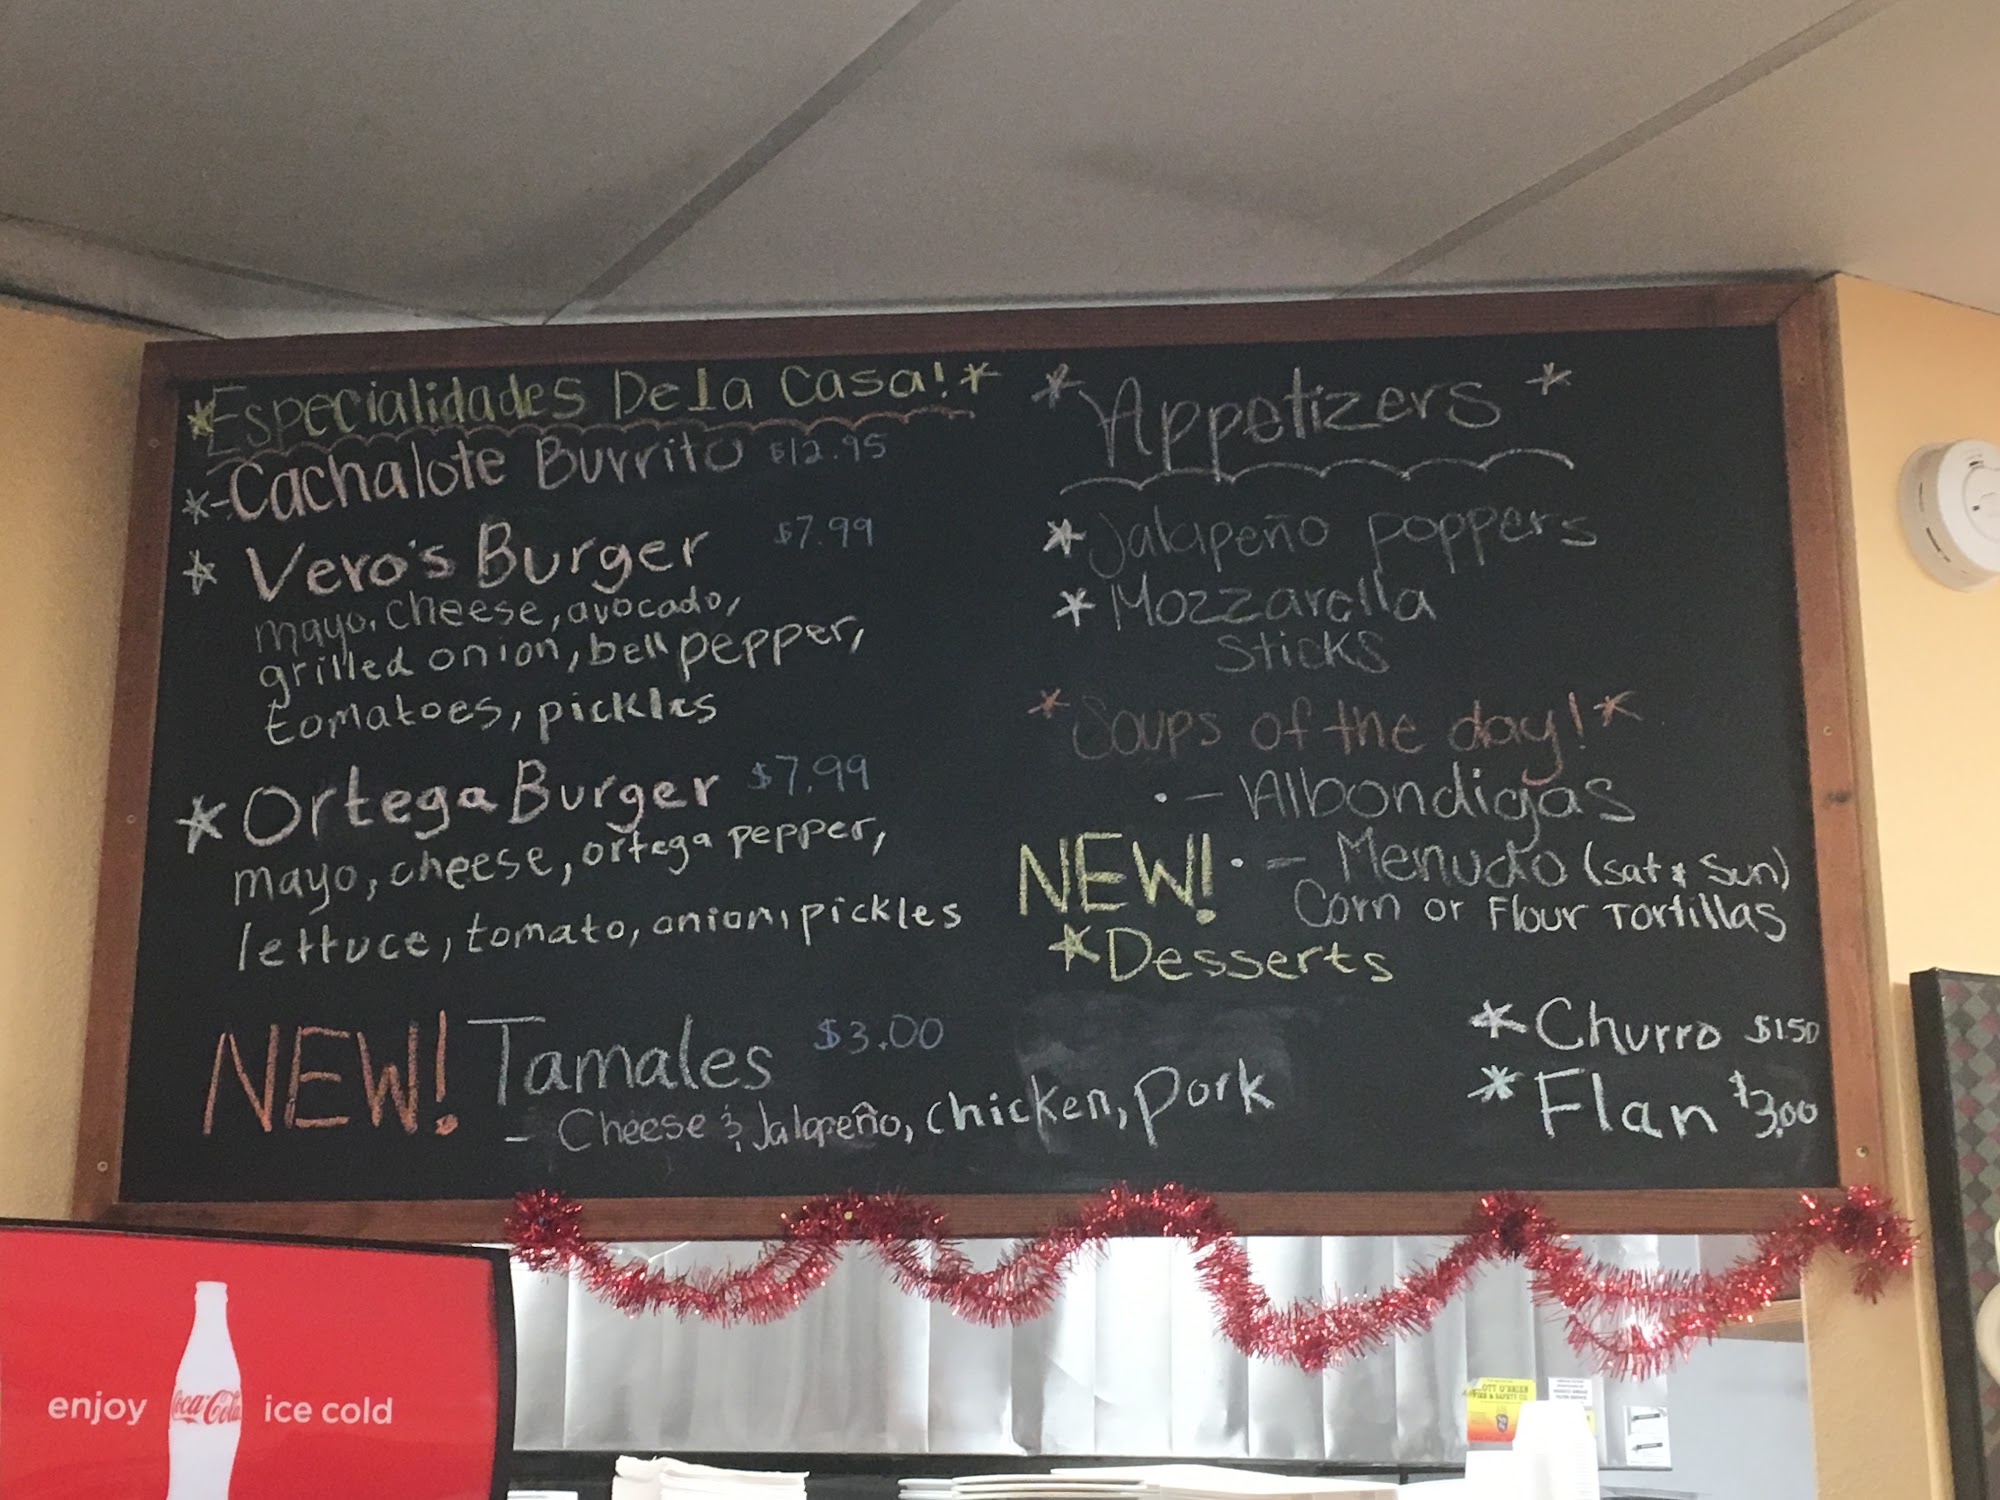 *Especialidades De la Casa!*
*-Cachalote Burrito $12.95
* Vero's Burger $7.99
mayo, cheese, avocado,
grilled onion, bell pepper,
tomatoes, pickles
* Ortega Burger $7.99
mayo, cheese, ortega pepper,
lettuce, tomato, onion, pickles
NEW! Tamales $3.00
- Cheese & Jalapeño, chicken, pork
*Appetizers*
*Jalapeño poppers
*Mozzarella
sticks
*Soups of the day!*
·- Albondigas
NEW! ·- Menudo (Sat & Sun)
Corn or Flour Tortillas
*Desserts
*Churro $1.50
*Flan $3.00
enjoy Coca-Cola ice cold